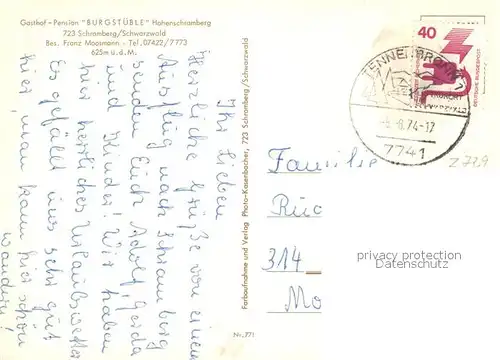 Gasthof - Pension "BURGSTÜBLE" Hohenschramberg
723 Schramberg/Schwarzwald
Bes. Franz Moosmann - Tel. 07422/7773
625m ü.d.M.
Ihr Lieben
Herzliche Grüße von einem
Ausflug nach Schramberg
senden Euch Adolf, Gerda
und Kinder! Wir haben
hier herrliches Urlaubswetter
Es gefällt uns sehr gut
hier, man kann hier schön
wandern!
Farbaufnahme und Verlag Photo-Kasenbacher, 723 Schramberg/Schwarzwald
Nr. 771
40
DEUTSCHE BUNDESPOST
TENNENBRONN
.8.74-12
7741
Z 729
Familie
314
privacy protection
Datenschutz